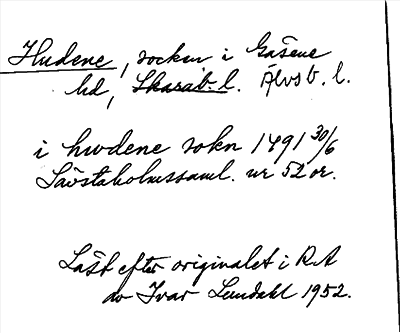 Hudene, socken i Gäsene
hd, Skarab. l. Älvsb. l.
i hwdene sokn 1491 30/6
Sävstaholmssaml. nr 52 or.
Läst efter originalet i RA
av Ivar Lundahl 1952.